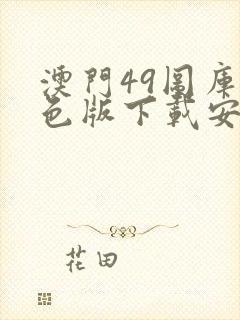 澳門49圖庫
色版下載安
花田